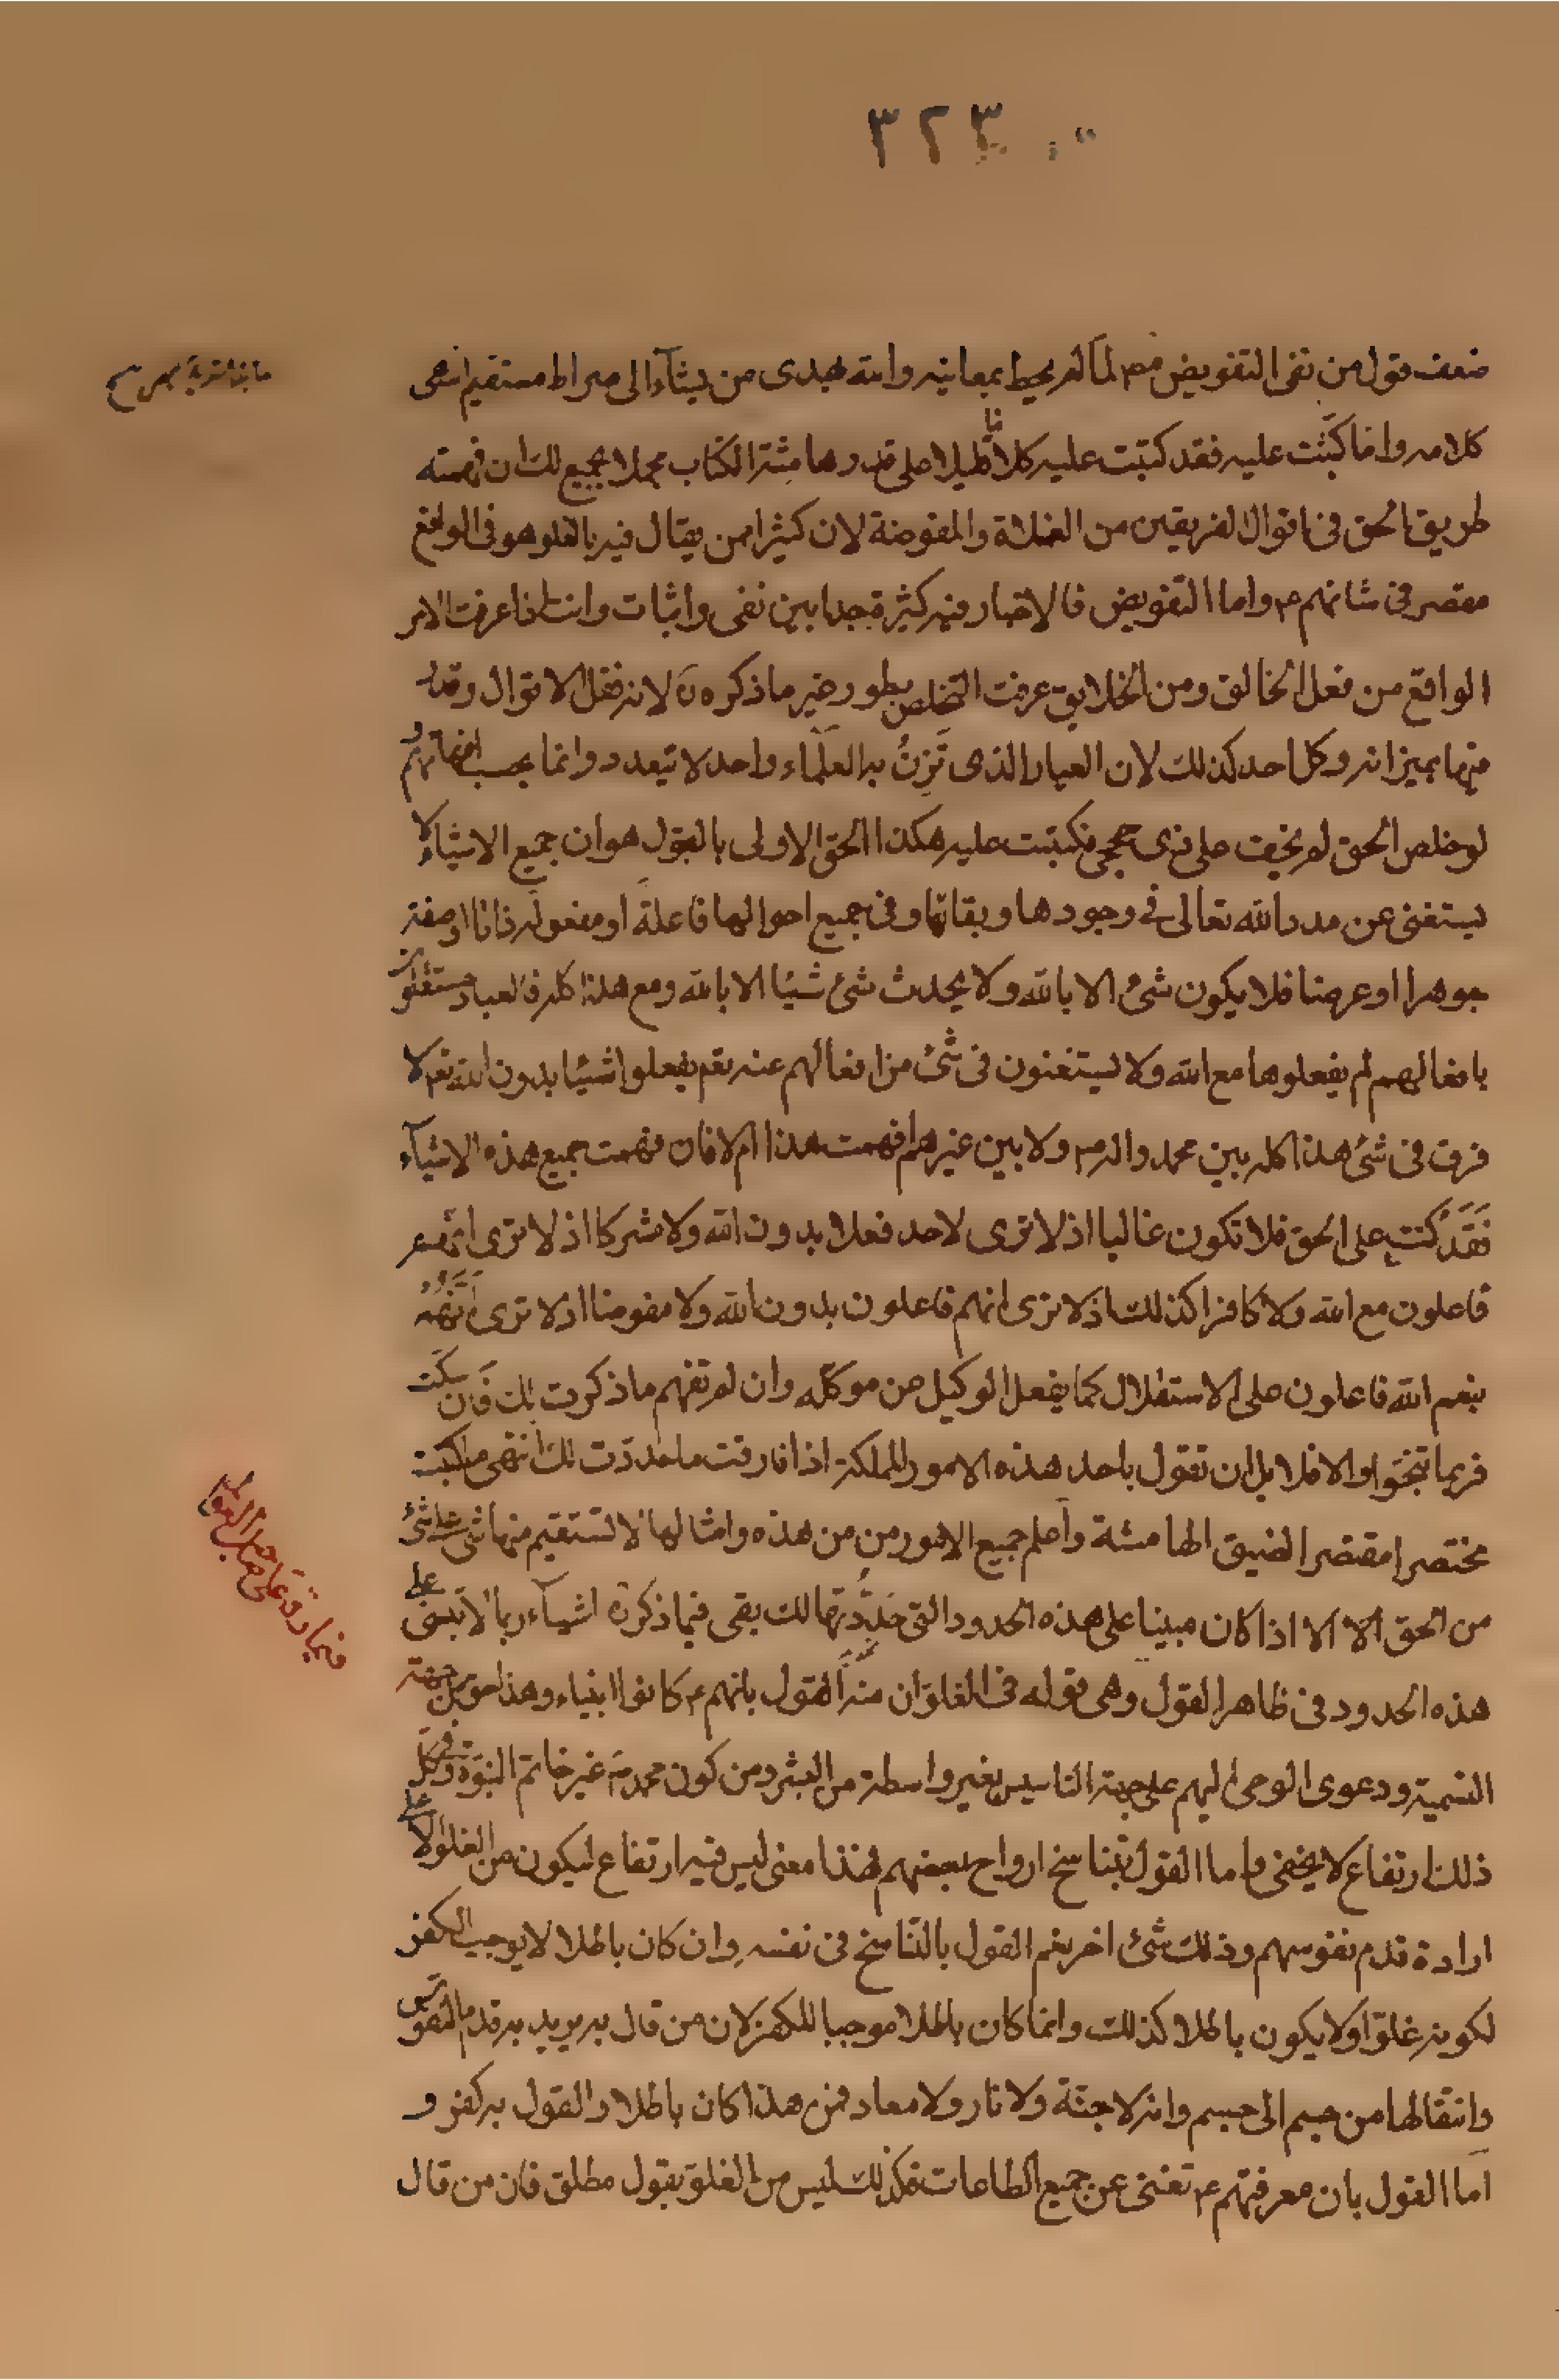 ٣٢٣
ضعف قول من نفى التفويض مع لما لم يحط بمعانيه والله يهدى من يشآء الى صراط مستقيم انتهى
كلامه وانا كتبت عليه فقد كتبت عليه كلاما قليلا على قدر هامشة الكتاب مجملا يجمع لك ان فهمته
طريق الحق فى اقوال الفريقين من الغلاة والمفوضة لان كثيرا ممن يقال فيه بالغلو هو فى الواقع
مقصر فى شانهم ع واما التفويض فالاخبار فيه كثيرة جدا بين نفى واثبات وانت اذا عرفت الامر
الواقع من فعل الخالق ومن الخلايق عرفت التخلص بطور غير ما ذكره لانه نقل الاقوال وقدر
منها بميزانه وكل احد كذلك لان العيار الذى تزن به العلماء واحد لا تيعدد وانما بحسب افهامهم و
لو خلص الحق لم يخف على ذى حجى فكتبت عليه هكذا الحق الاولى بالقبول هو ان جميع الاشياء لا
يستغنى عن مدد الله تعالى فى وجودها وبقائها وفى جميع احوالها فاعلة او مفعوله ذاتا او صفة
جوهرا او عرضا فلا يكون شئ الا بالله ولا يحدث شئ شيئا الا بالله ومع هذا كله فالعباد مستقلون
بافعالهم لم يفعلوها مع الله ولا يستغنون فى شئ من افعالهم عنه نعم يفعلوا شيئا بدون الله نعم لا
فرق فى شئ هذا كله بين محمد واله ص ولا بين غيرهم افهمت هذا ام لا فان فهمت جميع هذه الاشيآء
فقد كنت على الحق فلا تكون غاليا اذ لا ترى لاحد فعلا بدون الله ولا مشركا اذ لا ترى انهم
فاعلون مع الله ولا كافرا كذلك اذ لا ترى انهم فاعلون بدون الله ولا مفوضا اذ لا ترى انهم
بنعم الله فاعلون على الاستقلال كما يفعل الوكيل من موكله وان لم تفهم ما ذكرت لك فان سكت
فربما تنجو والا فلا بد ان تقول باحد هذه الامور المهلكة اذا فارقت ما حددت لك انتهى ما كتبت
مختصرا مقتصرا لضيق الهامشة واعلم جميع الامور من من هذه وامثالها لا تستقيم منها شئ على شئ
من الحق الا الا اذا كان مبينا على هذه الحدود التى حددتها لك بقى فيما ذكره اشيآء ربما لا تبنى على
هذه الحدود فى ظاهر القول وهى قوله فى الغلو ان منه القول بانهم ع كانوا انبياء وهذا حق من جهة
التسمية ودعوى الوحى اليهم على جهة التاسيس بغير واسطة من البشر ومن كون محمد ص غير خاتم النبوة وفى كل
ذلك ارتفاع لا يخفى واما القول بتناسخ ارواح بعضهم فهذا معنى ليس فيه ارتفاع ليكون من الغلو الا على
ارادة قدم نفوسهم وذلك شئ اخر نعم القول بالتناسخ فى نفسه وان كان باطلا لا يوجب الكفر
لكونه غلوا ولا يكون باطلا كذلك وانما كان باطلا موجبا للكفر لان من قال به يريد به قدم النفوس
وانتقالها من جسم الى جسم وانه لا جنة ولا نار ولا معاد فمن هذا كان باطلا والقول به كفر و
اما القول بان معرفتهم ع تغنى عن جميع الطاعات فكذلك ليس من الغلو بقول مطلق فان من قال